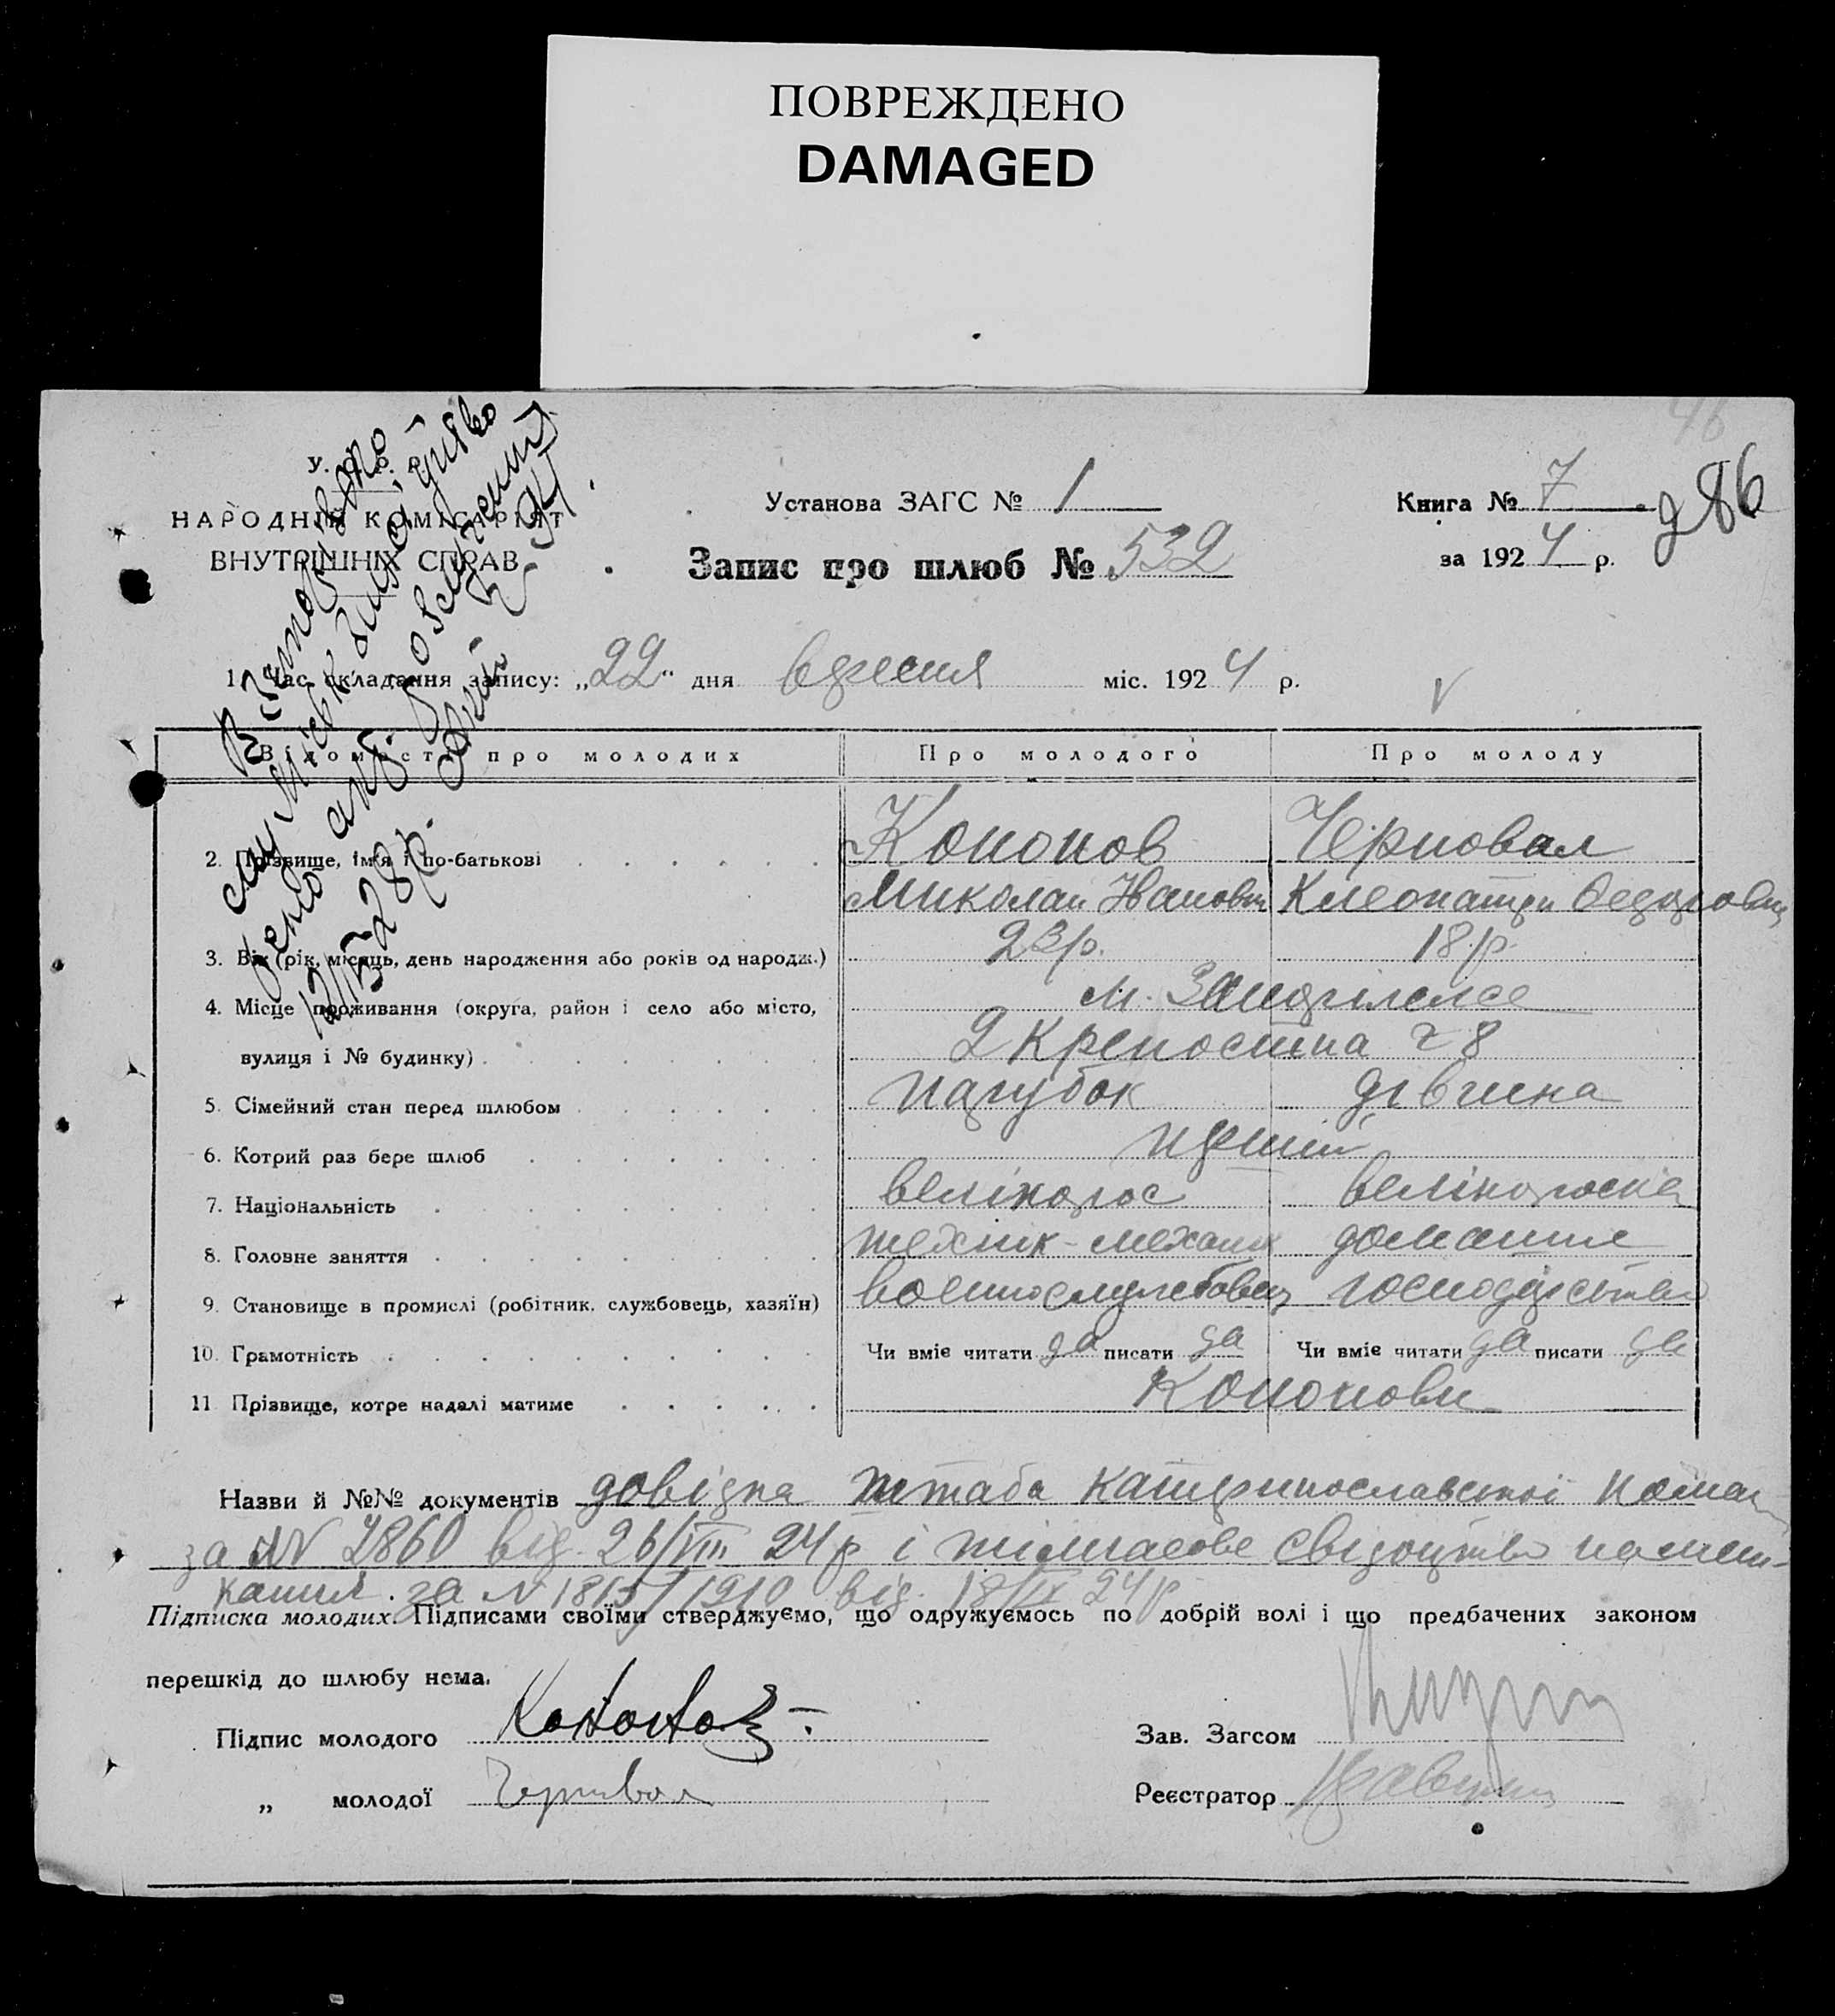 ПОВРЕЖДЕНО
DAMAGED
46
286
У. С. Р. Р.
НАРОДНІЙ КОМІСАРІЯТ
ВНУТРІШНІХ СПРАВ
Установа ЗАГС № 1
Книга № 7
за 1924 р.
Запис про шлюб № 532
1. Час складання запису: „22“ дня вересня міс. 1924 р.
Відомости про молодих
Про молодого
Про молоду
2. Прізвище, ім'я і по-батькові
Кононов
Черновал
Миколай Іванович
Клеопатри Федоровни
3. Вік (рік, місяць, день народження або років од народж.)
23 р.
18 р.
4. Місце проживання (округа, район і село або місто,
м. Запоріжжє
вулиця і № будинку)
2 Крепостна ч 8
5. Сімейний стан перед шлюбом
парубок
дівчина
6. Котрий раз бере шлюб
перший
7. Національність
велікорос
велікороска
8. Головне заняття
технік-механик
домашнє
9. Становище в промислі (робітник, службовець, хазяїн)
военнослужбовец
господарство
10. Грамотність
Чи вміє читати да писати да
Чи вміє читати да писати да
11 Прізвище, котре надалі матиме
Кононови
Назви й №№ документів довідка штаба катеринославської
за № 7860 від. 26/VIII 24 р і тімчасове свідоцтво помеш-
кання. за № 1910 від. 18/IX 24 р
Підписка молодих. Підписами своїми стверджуємо, що одружуємось по добрій волі і що предбачених законом
перешкід до шлюбу нема.
Підпис молодого Кононов
Зав. Загсом
„ молодої Черновал
Реєстратор
12/IV 28 р.